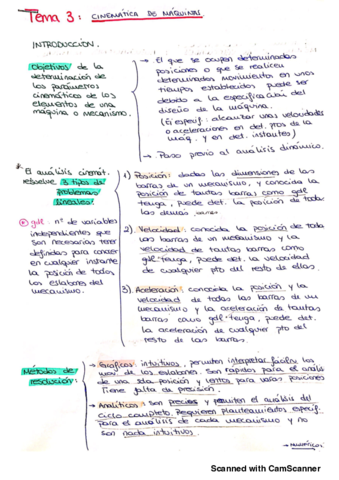 Tema 3: CINEMÁTICA DE MÁQUINAS
INTRODUCCIÓN.
Objetivos de la
determinación de
los parámetros
cinemáticos de los
elementos de una
máquina o mecanismo.
→ El que se ocupen determinadas
posiciones o que se realicen
determinados movimientos en unos
tiempos establecidos puede ser
debido a la especificación del
diseño de la máquina.
(Si especif: alcanzar unas velocidades
o aceleraciones en det. ptos de la
maq. y en det. instantes)
→ Paso previo al análisis dinámico.
* El análisis cinemát.
resuelve 3 tipos de
problemas
lineales:
1) Posición: dadas las dimensiones de las
barras de un mecanismo, y conocida la
posición de tantas barras como gdl
tenga, puede det. la posición de todas
las demás
* gdl: nº de variables
independientes que
son necesarias tener
definidas para conocer
en cualquier instante
la posición de todos
los eslabones del
mecanismo.
2) Velocidad: conocida la posición de toda
las barras de un mecanismo y la
velocidad de tantas barras como
gdl tenga, puede det. la velocidad
de cualquier pto del resto de ellas.
3) Aceleración: conocida la posición y la
velocidad de todas las barras de un
mecanismo y la aceleración de tantas
barras como gdl tenga, puede det.
la aceleración de cualquier pto del
resto de las barras.
Métodos de
resolución:
→ Gráficos: intuitivos, permiten interpretar fácilm. los
mov. de los eslabones. Son rápidos para el análisis
de una sola posición y lentos para varias posiciones
Tiene falta de precisión.
→ Analíticos: son precisos y permiten el análisis del
ciclo completo. Requieren planteamientos específ.
para el análisis de cada mecanismo y no
son nada intuitivos.
→ NUMÉRICOS:
Scanned with CamScanner